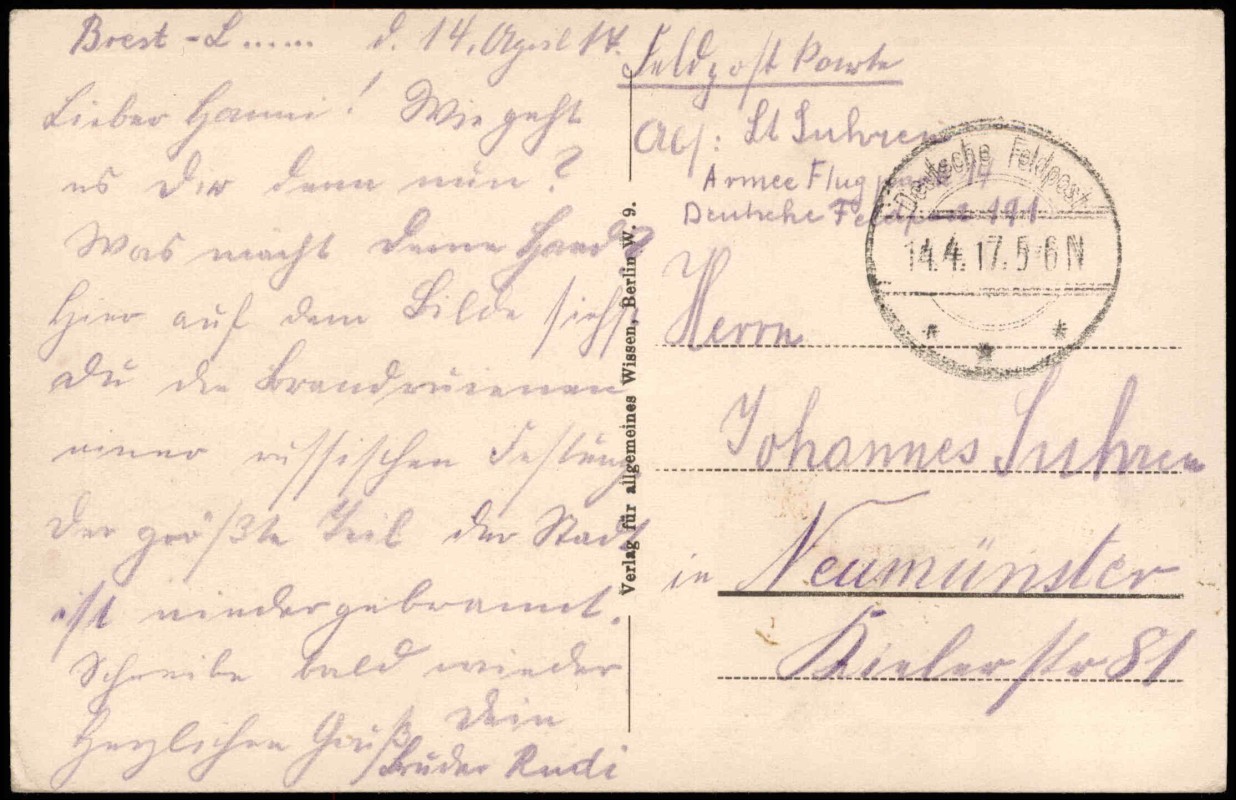 Brest-L...... d. 14. April 17.
Lieber Hanni! Wie geht
es Dir denn nun?
Was macht Deine Hand?
Hier auf dem Bilde siehst
Du die Brandruienen
einer russischen Festung
Der größte Teil der Stadt
ist niedergebrannt.
Schreibe bald wieder
Herzlichen Gruß Dein
Bruder Rudi
Verlag für allgemeines Wissen, Berlin W. 9.
Feldpost Karte
Abs: Lt Suhren
Armee Flug 
Deutsche Feldpost 191
Deutsche Feldpost
14.4.17. 5-6 N
* * *
Herrn
Johannes Suhren
in Neumünster
Kieler str 81